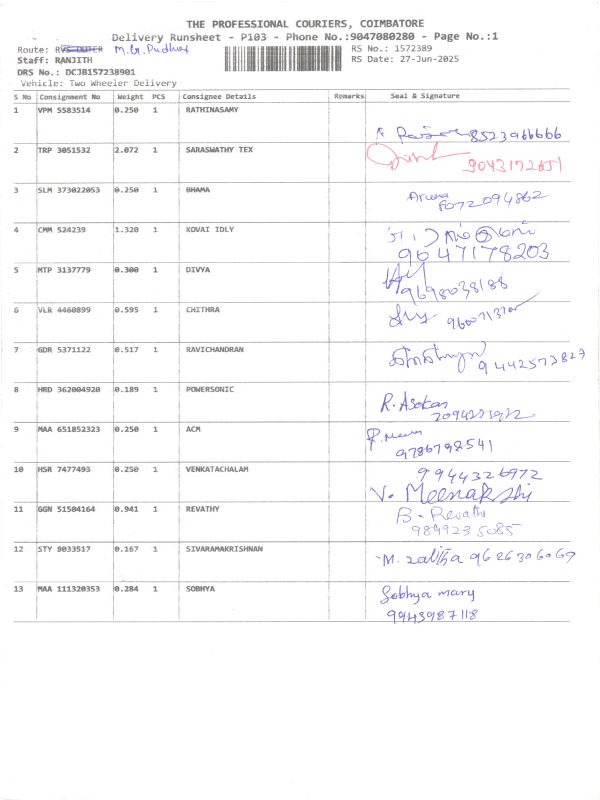 THE PROFESSIONAL COURIERS, COIMBATORE
Delivery Runsheet - P103 - Phone No.:9047080280 - Page No.:1
Route: RVS OUTER M.G. Pudhur
RS No.: 1572389
Staff: RANJITH
RS Date: 27-Jun-2025
DRS No.: DCJB157238901
Vehicle: Two Wheeler Delivery
S No Consignment No Weight PCS Consignee Details Remarks Seal & Signature
1 VPM 5583514 0.250 1 RATHINASAMY
8523966666
2 TRP 3051532 2.072 1 SARASWATHY TEX
3 SLM 373022053 0.250 1 BHAMA
Aruna
8072094862
4 CMM 524239 1.320 1 KOVAI IDLY
9647178203
5 MTP 3137779 0.300 1 DIVYA
9698038188
6 VLR 4460899 0.595 1 CHITHRA
7 GDR 5371122 0.517 1 RAVICHANDRAN
9442573827
8 HRD 362004920 0.189 1 POWERSONIC
R. Asokan
9 MAA 651852323 0.250 1 ACM
9786798541
10 HSR 7477493 0.250 1 VENKATACHALAM
9944326972
V. Meenakshi
11 GGN 51504164 0.941 1 REVATHY
B. Revathi
9849235085
12 STY 8033517 0.167 1 SIVARAMAKRISHNAN
M. Lalitha 9626306069
13 MAA 111320353 0.284 1 SOBHYA
Sobhya mary
9943987118